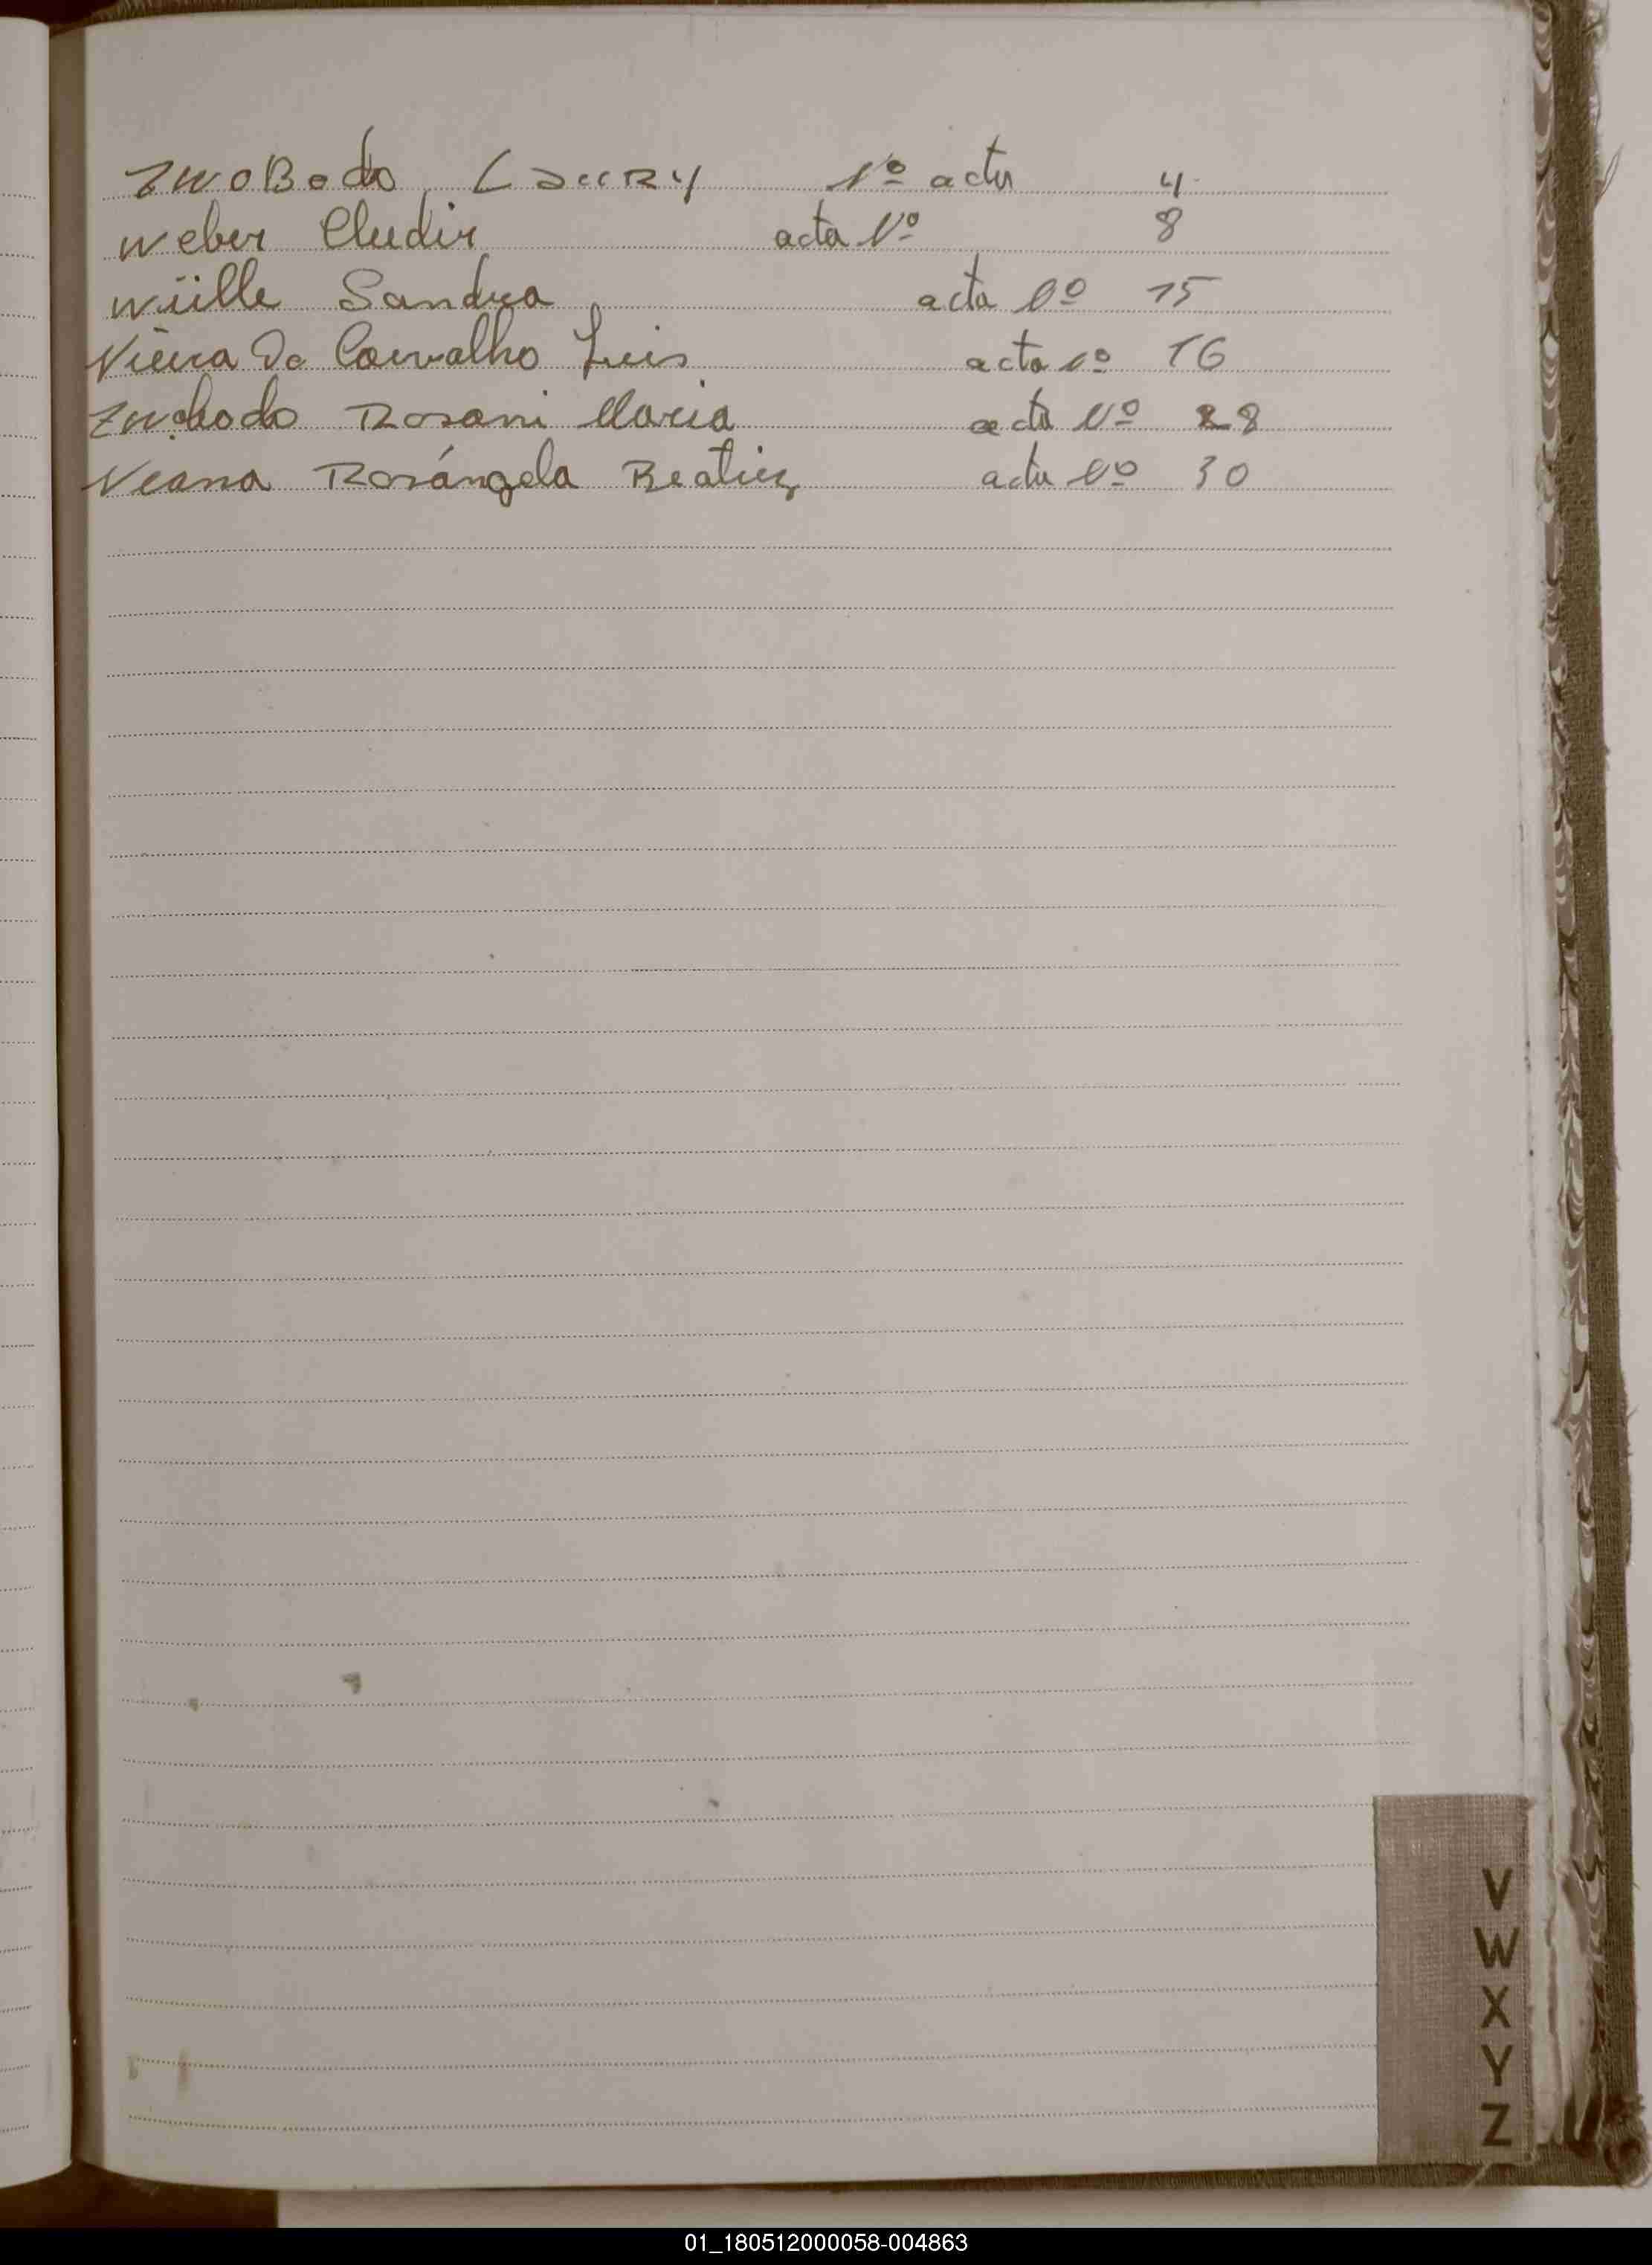 ZWOBodo LAURY Nº acta 4
Weber Cludir acta Nº 8
Wülle Sandra acta Nº 15
Vieira Da Carvalho Luis acta Nº 16
Zwobodo Rosani Maria acta Nº 28
Viana Rosángela Beatriz acta Nº 30
V
W
X
Y
Z
01_180512000058-004863